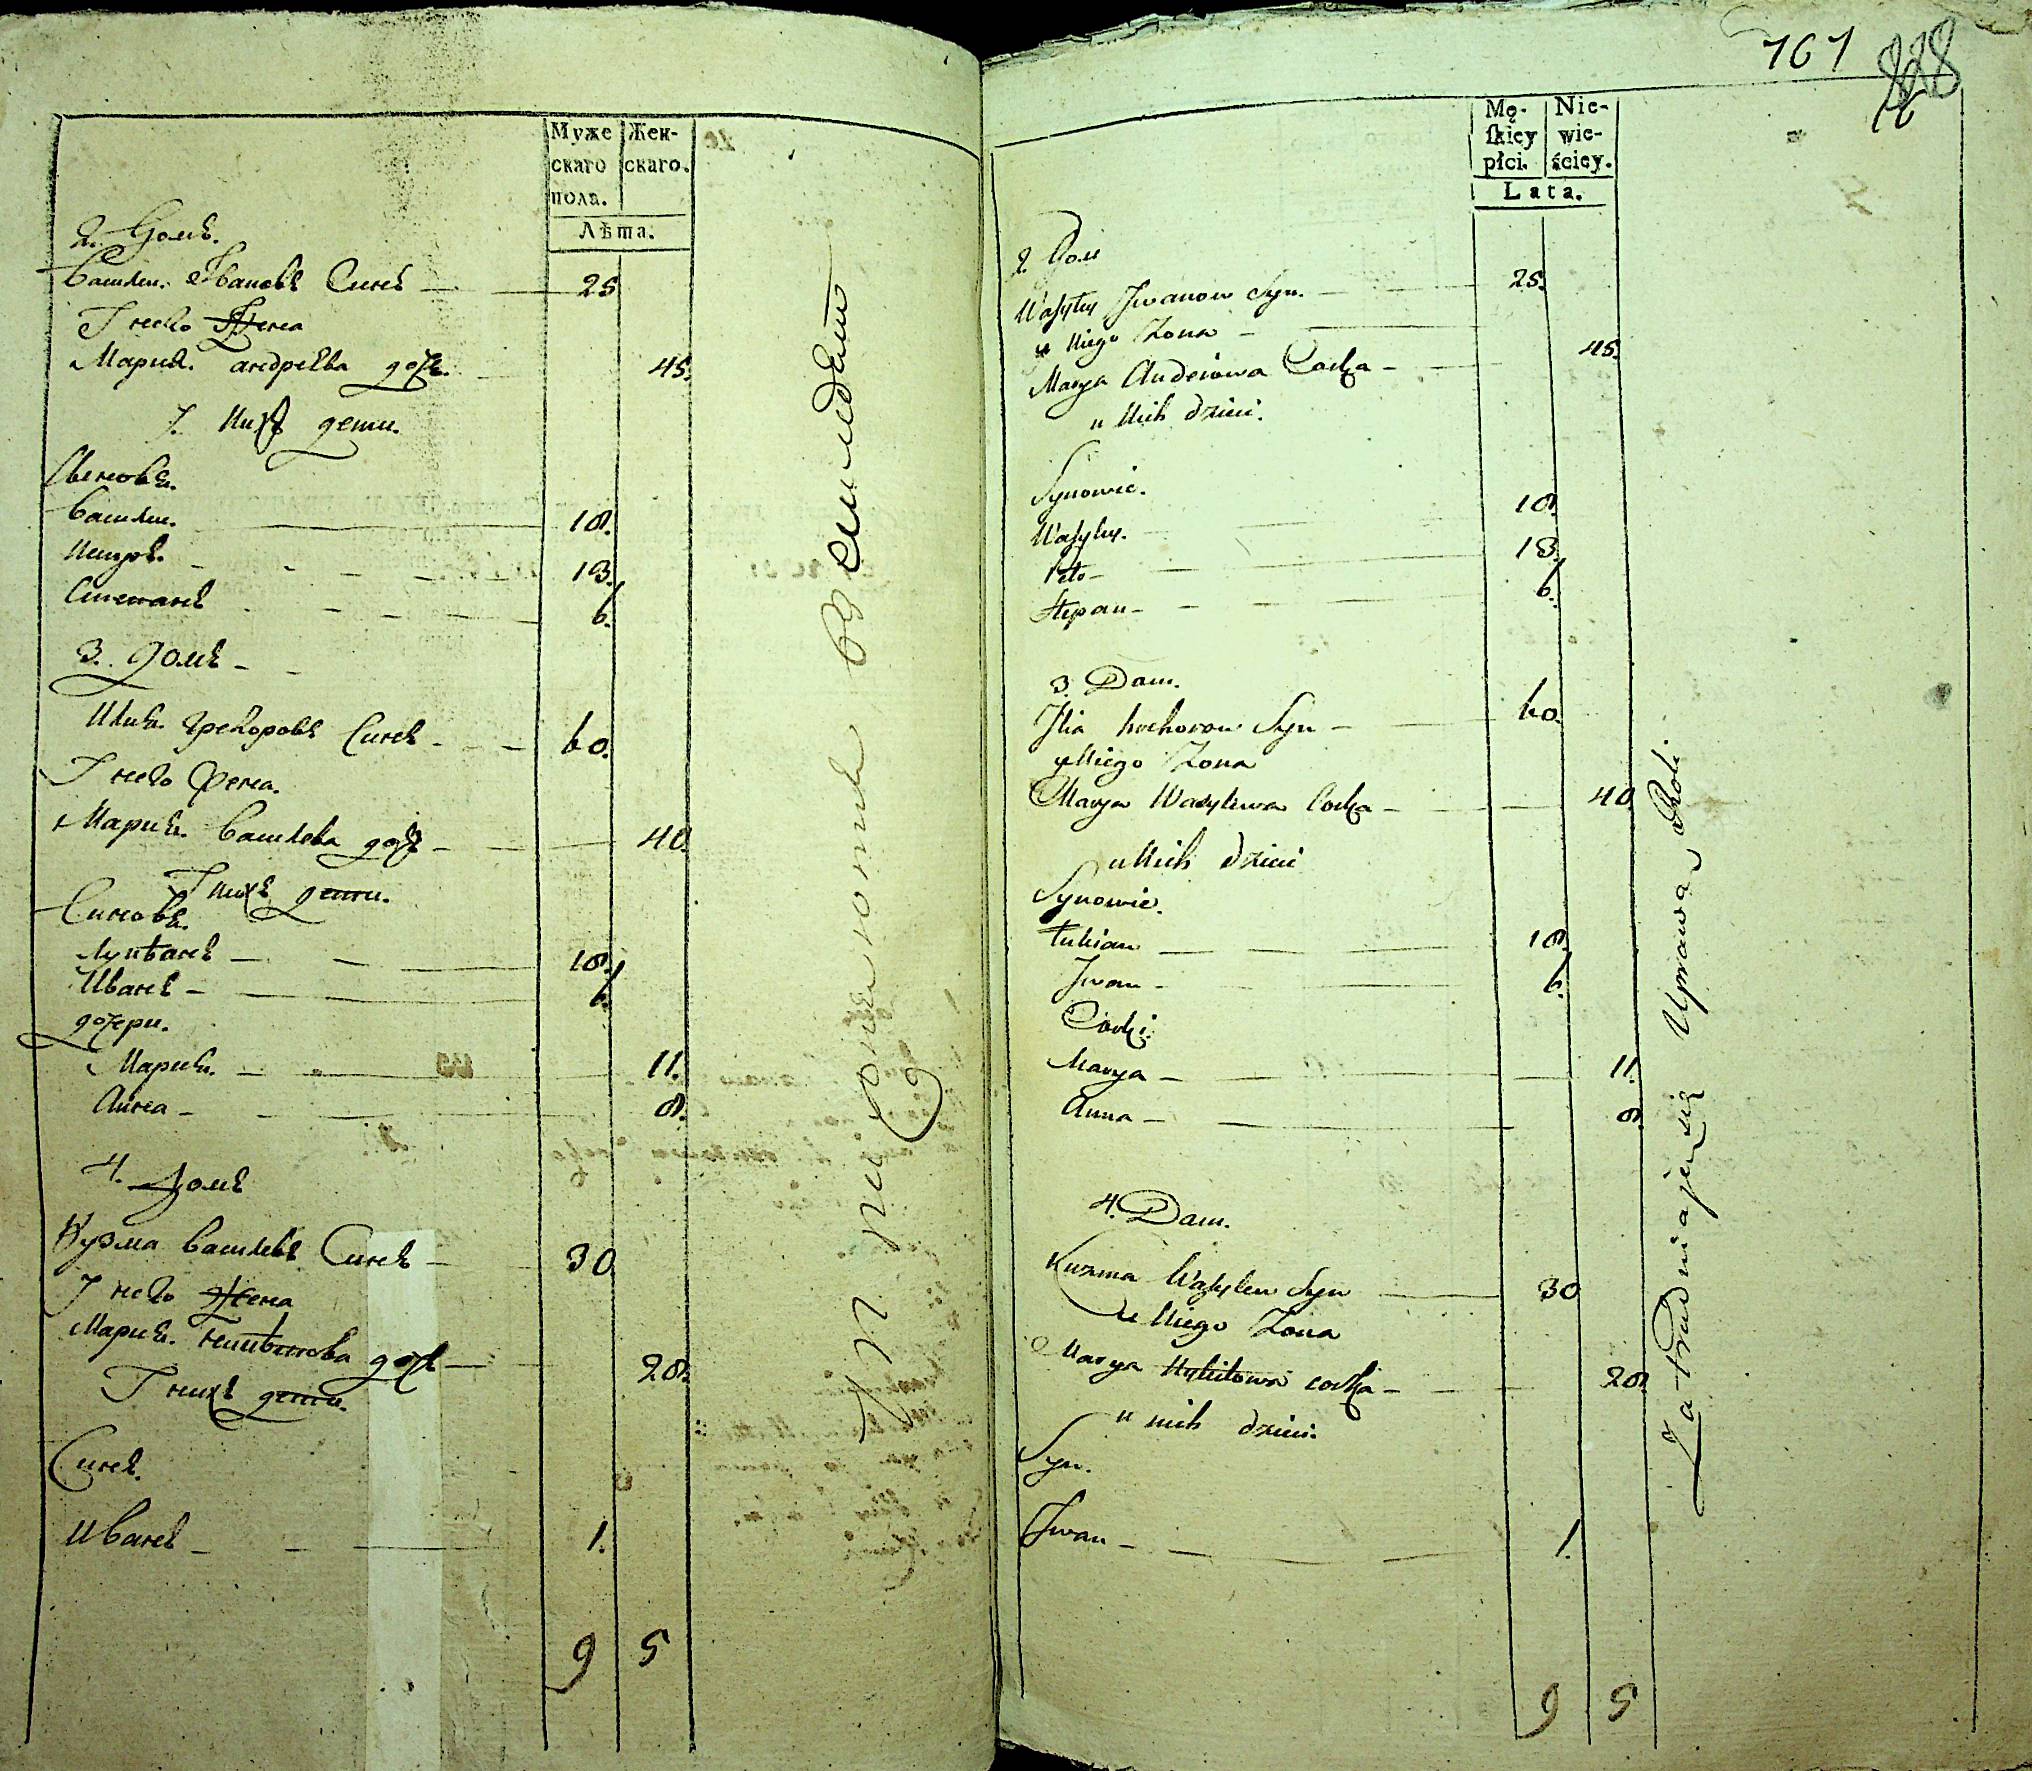 Муже
скаго
пола.
Жен-
скаго.
Лѣта.
2. Домъ.
Василий Ивановъ Синъ — 25
У него Жена
Мария андреева дочь. 45.
У Нихъ дети.
Сыновья.
Василий. — 18.
Петръ. — 13.
Степанъ — 6.
3. Домъ —
Илия Григоровъ Синъ — 60.
У него Жена.
Мария Василева дочь — 40.
У нихъ дети.
Синовья.
Лукианъ — 18.
Иванъ — 6.
дочери.
Мария. — 11.
Анна — 8.
4. Домъ
Кузма Василевъ Синъ — 30
У него Жена
Мария никитова дочь — 28.
У нихъ дети.
Синъ.
Иванъ — 1.
9 5
161
Mę-
ſkiey
płci.
Nie-
wie-
ściey.
Lata.
2. Dom
Wasyły Jwanow Syn. — 25.
u Niego Żona —
Marya Andriowa Corka — 45.
u Nich dzieci.
Synowie.
Wasyły. — 18.
Petr — 13.
Stepan — 6.
3. Dom.
Jlia Syn — 60.
u Niego Żona
Marya Wasylewa Corka — 40.
u Nich dzieci
Synowie.
Łukian — 18.
Jwan — 6.
Córki.
Marya — 11.
Anna — 8.
4. Dom.
Kuzma Wasylew Syn — 30
u Niego Żona
Marya Nykitowa corka — 28.
u nich dzieci.
Syn.
Jwan — 1.
9 5
Zatrudniaje się Uprawą Roli.